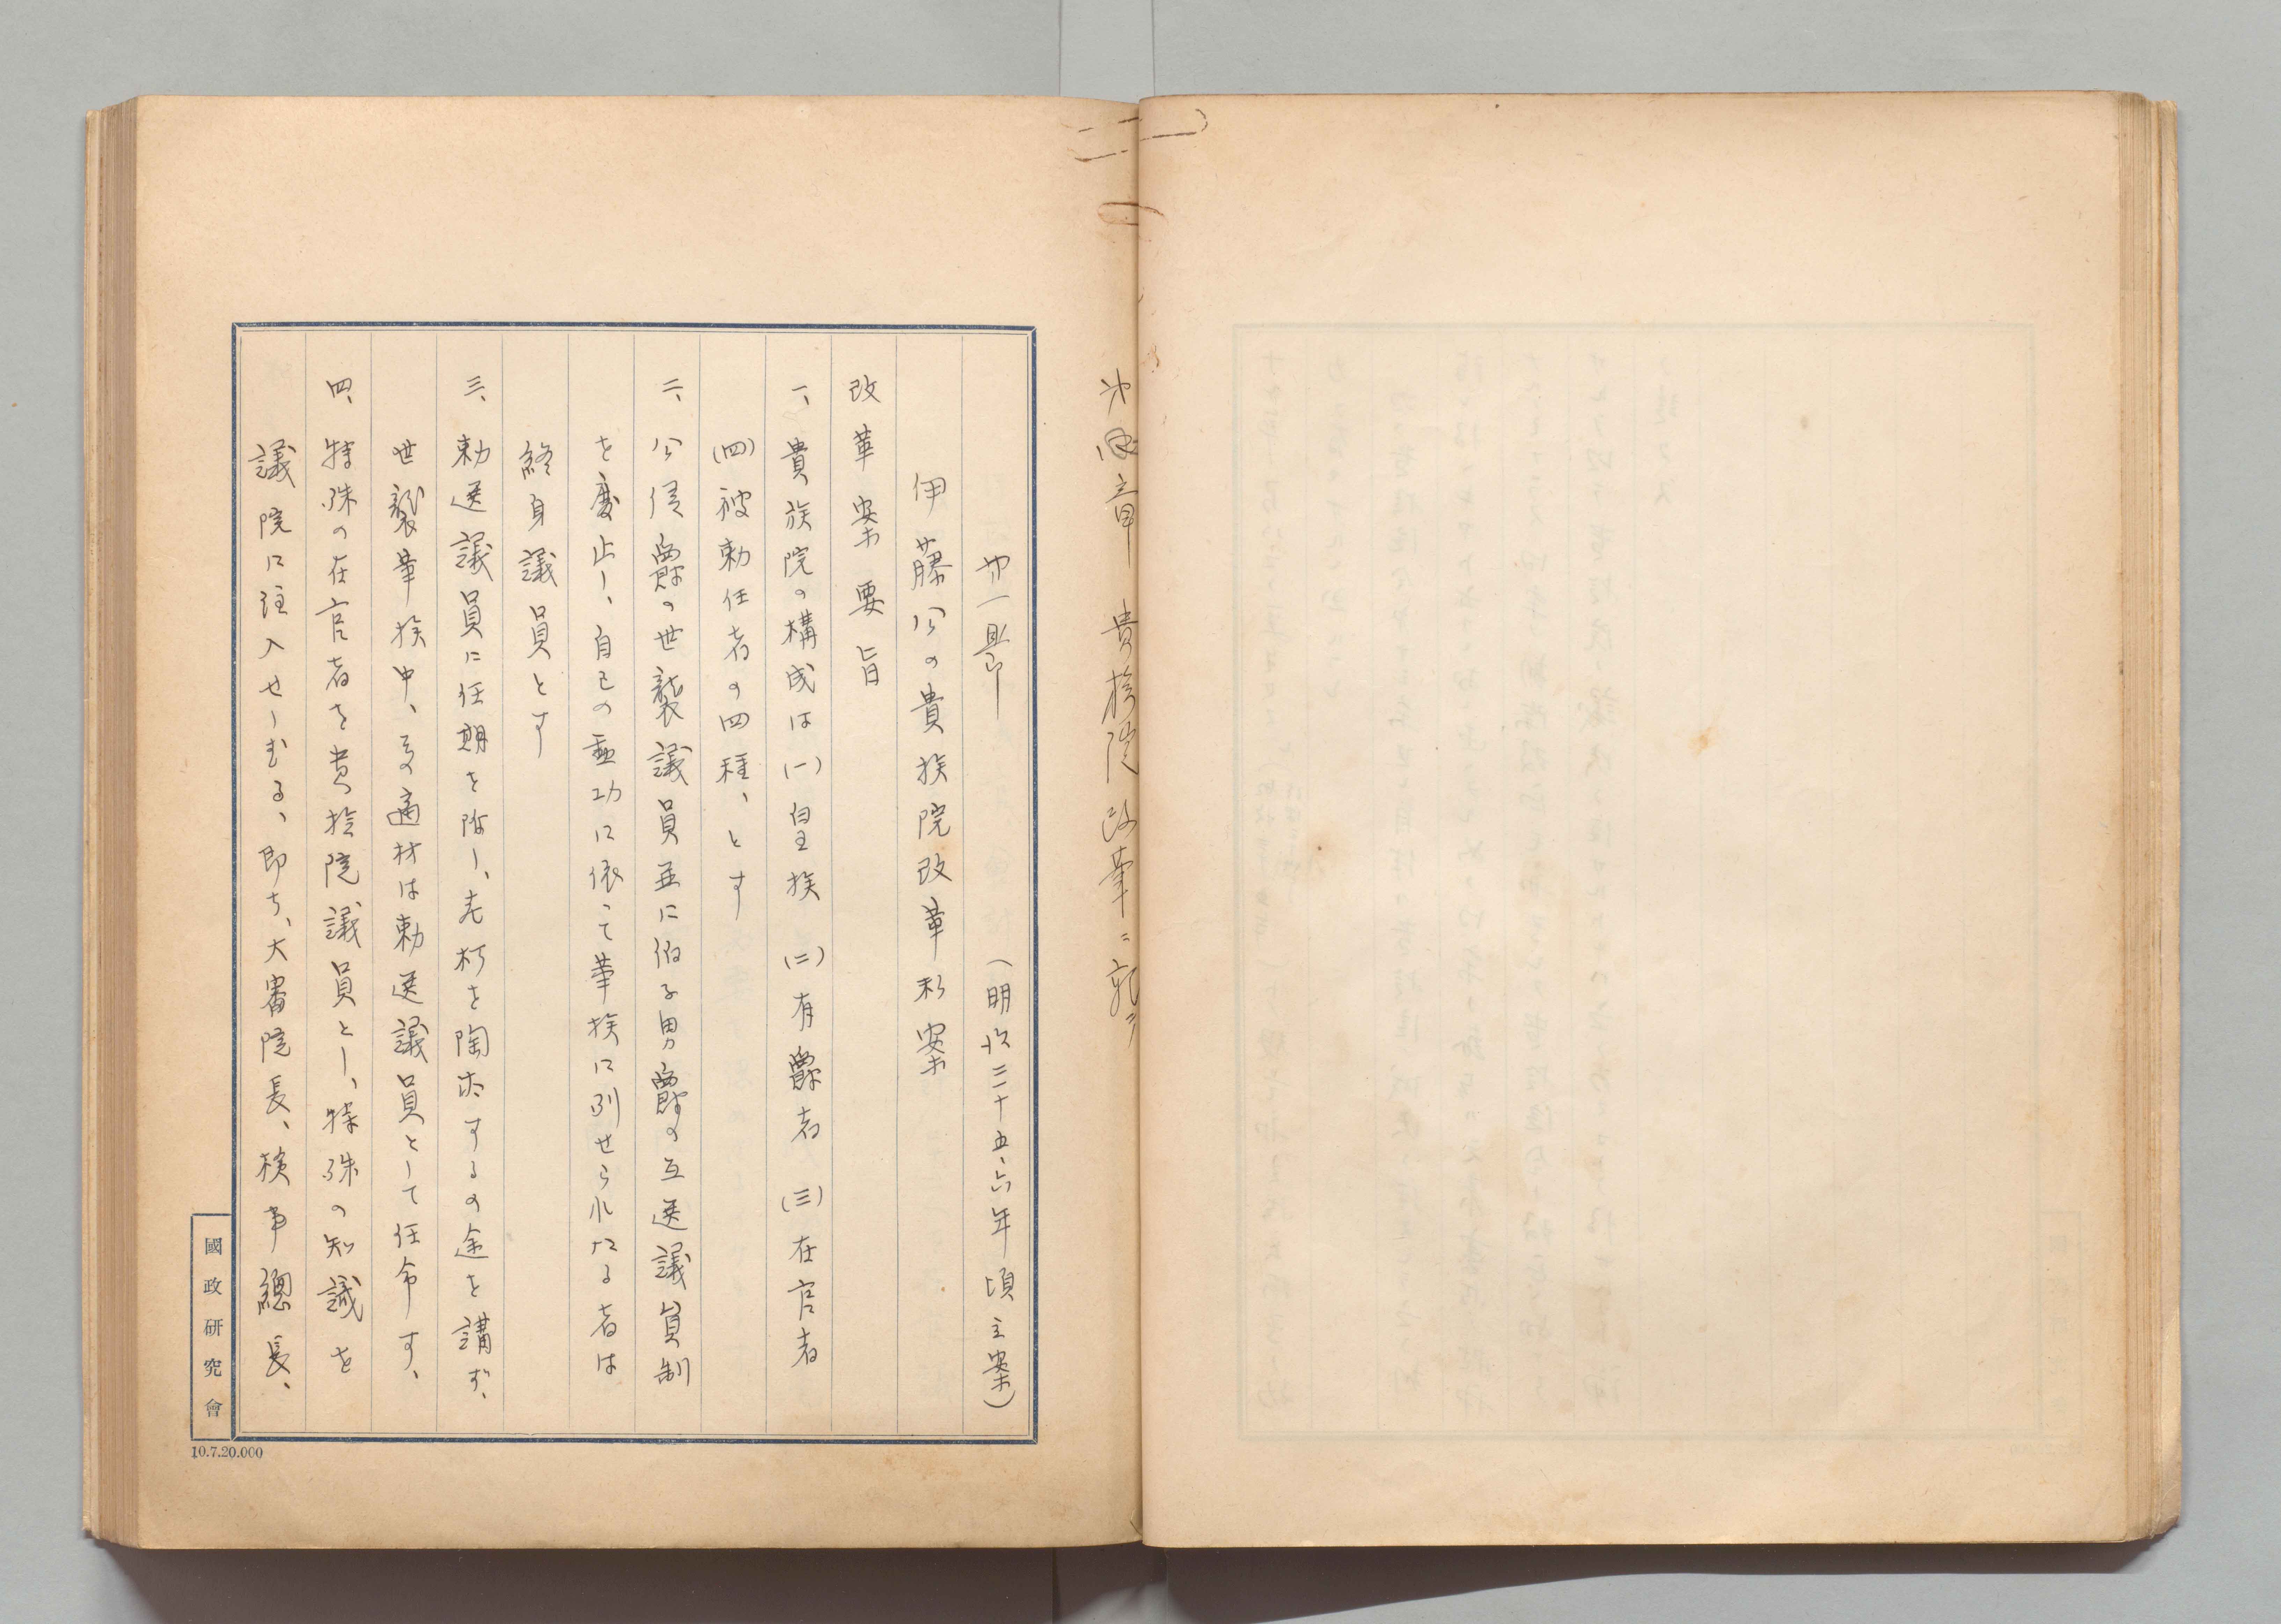 章 貴族院改革ニ就テ
第一節
(明治三十五、六年頃主案)
伊藤公の貴族院改革私案
改革案要旨
一、貴族院の構成は(一)皇族(二)有爵者(三)在官者
(四)被勅任者の四種、とす
二、公侯爵の世襲議員並に伯子男爵の互選議員制
を廃止し、自己の勲功に依って華族に列せられたる者は
終身議員とす
三、勅選議員に任期を附し、老朽を陶汰するの途を講ず、
世襲華族中、その適材は勅選議員として任命す、
四、特殊の在官者を貴族院議員とし、特殊の知識を
議院に注入せしむる、即ち、大審院長、検事總長、
國政研究會
10.7.20.000